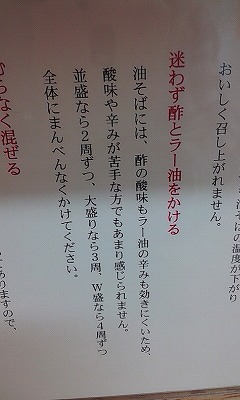 そばの温度が下がり
おいしく召し上がれません。
迷わず酢とラー油をかける
油そばには、酢の酸味もラー油の辛みも効きにくいため、
酸味や辛みが苦手な方でもあまり感じられません。
並盛なら2周ずつ、大盛りなら3周、W盛なら4周ずつ
全体にまんべんなくかけてください。
むらなく混ぜる
ありますので、